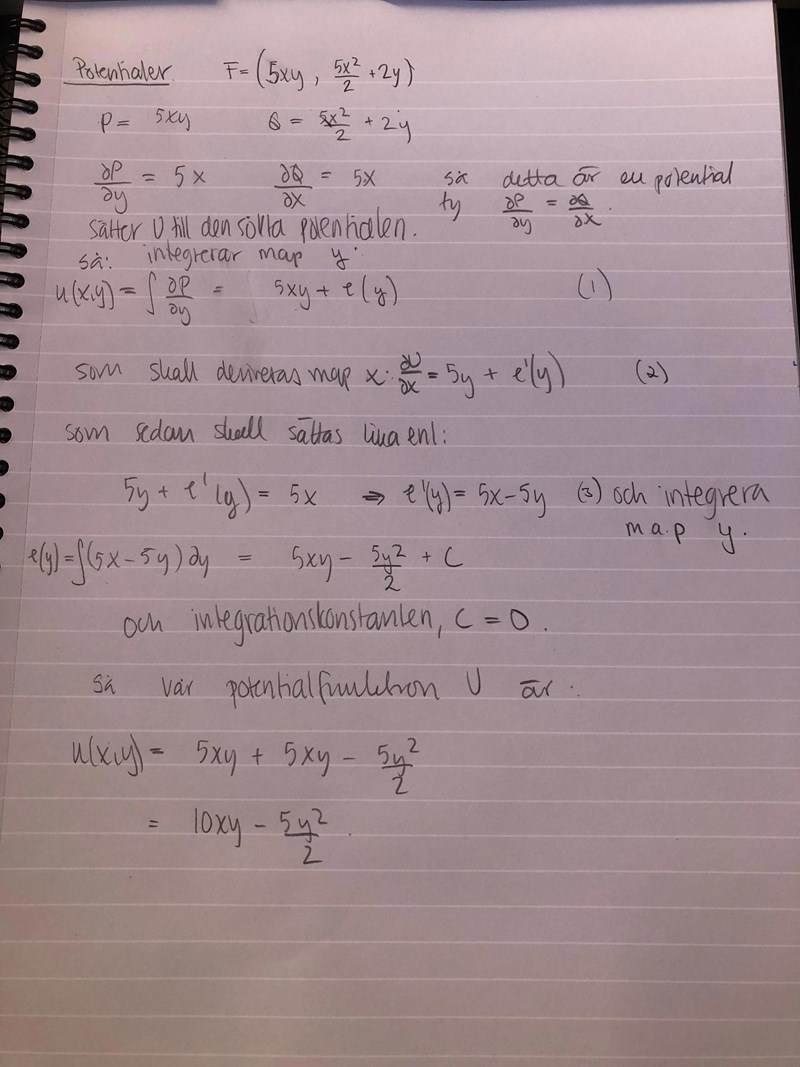 Potentialer F = (5xy, 5x²/2 + 2y)
P = 5xy Q = 5x²/2 + 2y
∂P/∂y = 5x ∂Q/∂x = 5x så detta är en potential
ty ∂P/∂y = ∂Q/∂x.
sätter U till den sökta potentialen.
så: integrerar map y.
u(x,y) = ∫ ∂P/∂y = 5xy + e(y) (1)
som skall deriveras map x: ∂U/∂x = 5y + e'(y) (2)
som sedan skall sättas lika enl:
5y + e'(y) = 5x ⇒ e'(y) = 5x-5y (3) och integrera
m.a.p y.
e(y) = ∫(5x-5y)∂y = 5xy - 5y²/2 + C
och integrationskonstanten, C = 0.
så vår potentialfunktion U är:
u(x,y) = 5xy + 5xy - 5y²/2
= 10xy - 5y²/2.